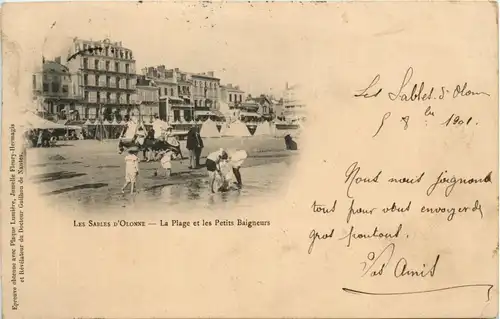 Epreuve obtenue avec Plaque Lumière, Jumelle Fleury-Hermagis
et Révélateur du Docteur Guilben de Nantes.
LES SABLES D'OLONNE — La Plage et les Petits Baigneurs
Les Sables d'Olonne
5 8bre 1901.
Nous nous joignons
tous pour vous envoyer de
gros poutous.
Vos Amis